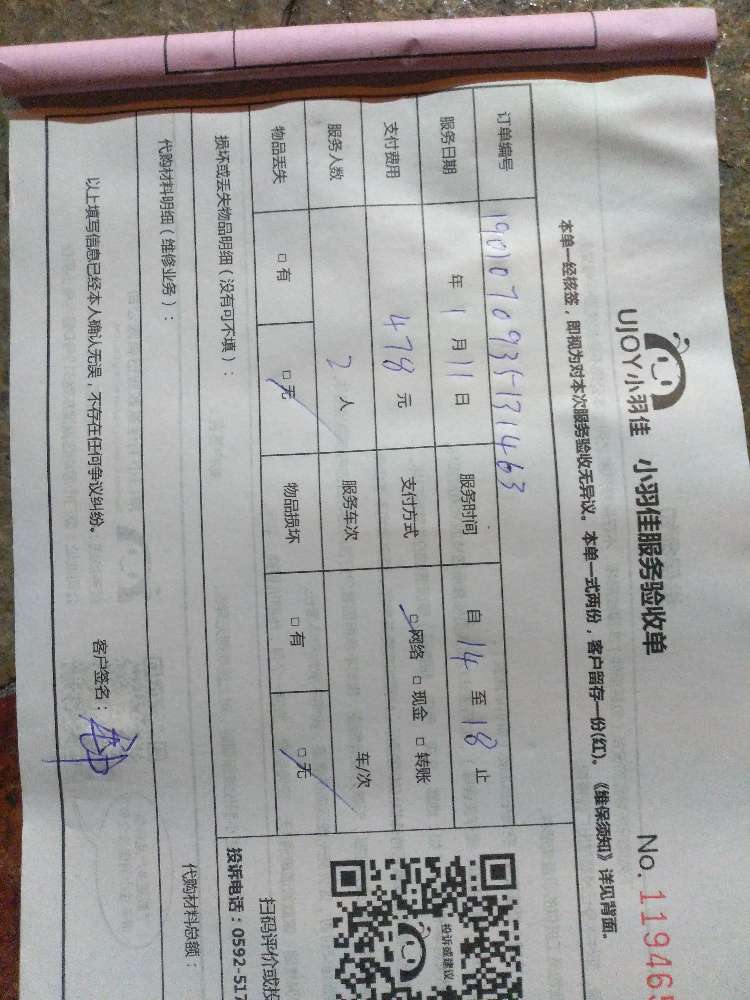 UJOY小羽佳 小羽佳服务验收单
No. 11946
本单一经核签，即视为对本次服务验收无异议。本单一式两份，客户留存一份(红)。《维保须知》详见背面。
订单编号 190107093513 1463
服务日期 年 1 月 11 日 服务时间 自 14 至 18 止
支付费用 478 元 支付方式 □网络 □现金 □转账
服务人数 2 人 服务车次 车/次
物品丢失 □有 □无 物品损坏 □有 □无
损坏或丢失物品明细（没有可不填）：
代购材料明细（维修业务）： 代购材料总额：
以上填写信息已经本人确认无误，不存在任何争议纠纷。 客户签名：
投诉或建议
扫码评价或投
投诉电话：0592-517